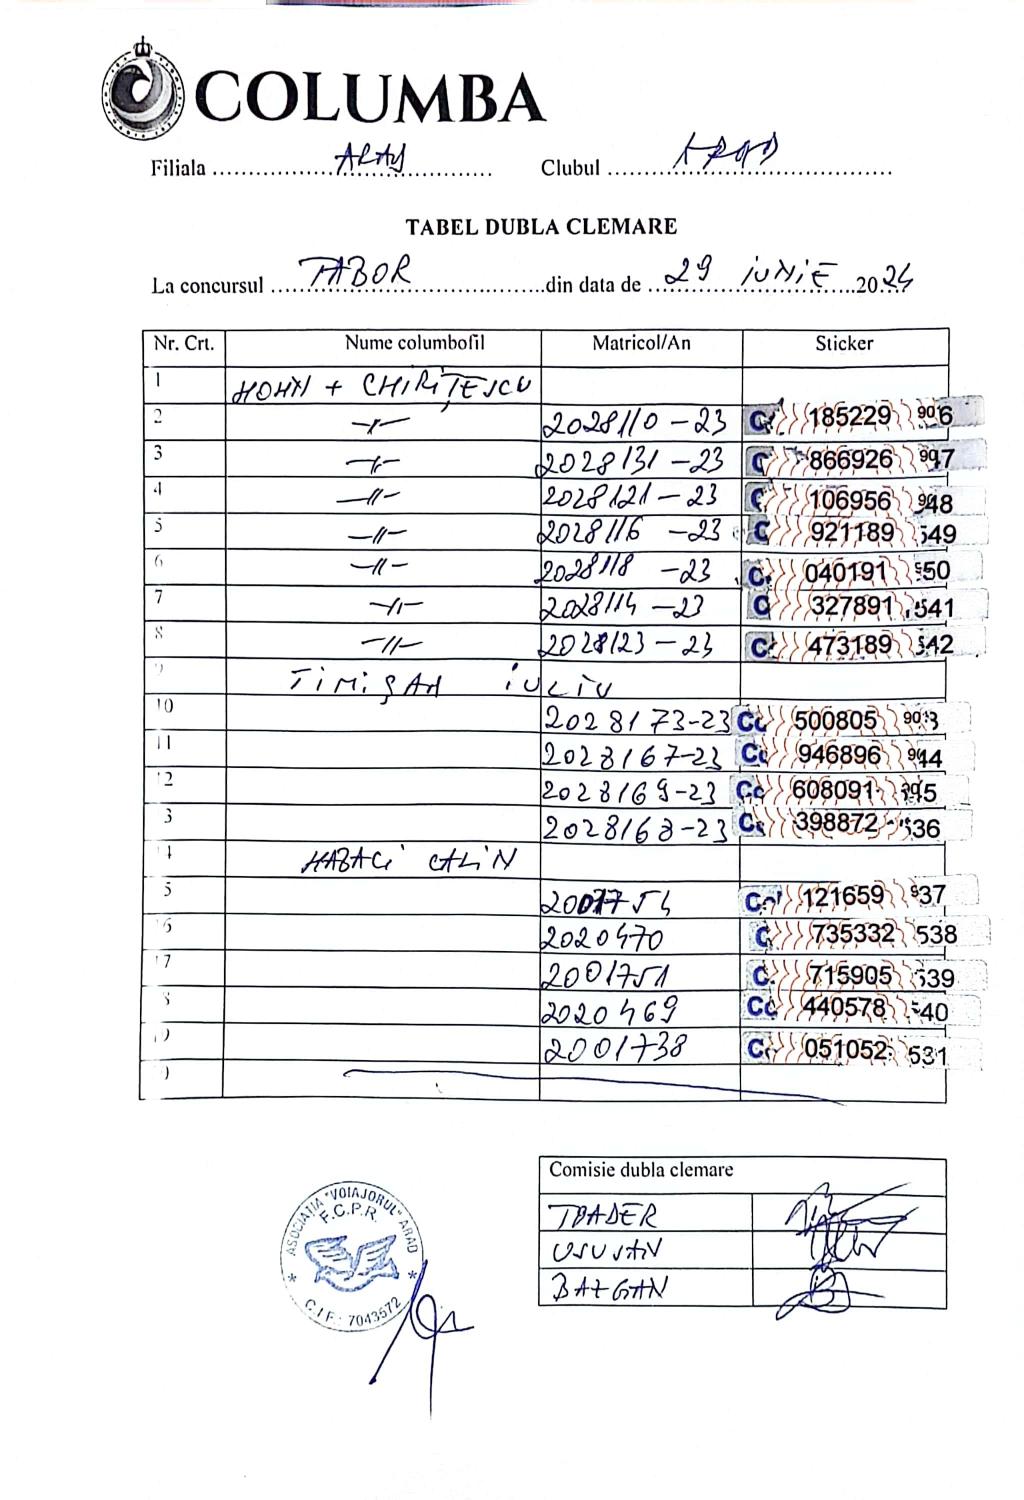 COLUMBA
Filiala ARAD Clubul ARAD
TABEL DUBLA CLEMARE
La concursul TABOR din data de 29 IUNIE 2024
Nr. Crt. Nume columbofil Matricol/An Sticker
1 HOHN + CHIRIȚESCU
2 -//- 2028110-23 185229
3 -//- 2028131-23 866926
4 -//- 2028121-23 106956
5 -//- 2028116-23 921189 549
6 -//- 2028118-23 040191
7 -//- 2028114-23 327891 541
8 -//- 2028123-23 473189 542
9 TIMIȘAN IULIU
10 2028173-23 500805
11 2028167-23 946896
12 2028169-23 608091
3 2028168-23 398872
14 CALIN
15 121659
16 2020470 735332 538
17 2001751 715905 539
18 2020469 440578
19 2001738 051052 531
Comisie dubla clemare
TOADER
BAZGAN
ASOCIATIA "VOIAJORUL" ARAD
F.C.P.R.
C.I.F.: 7043572